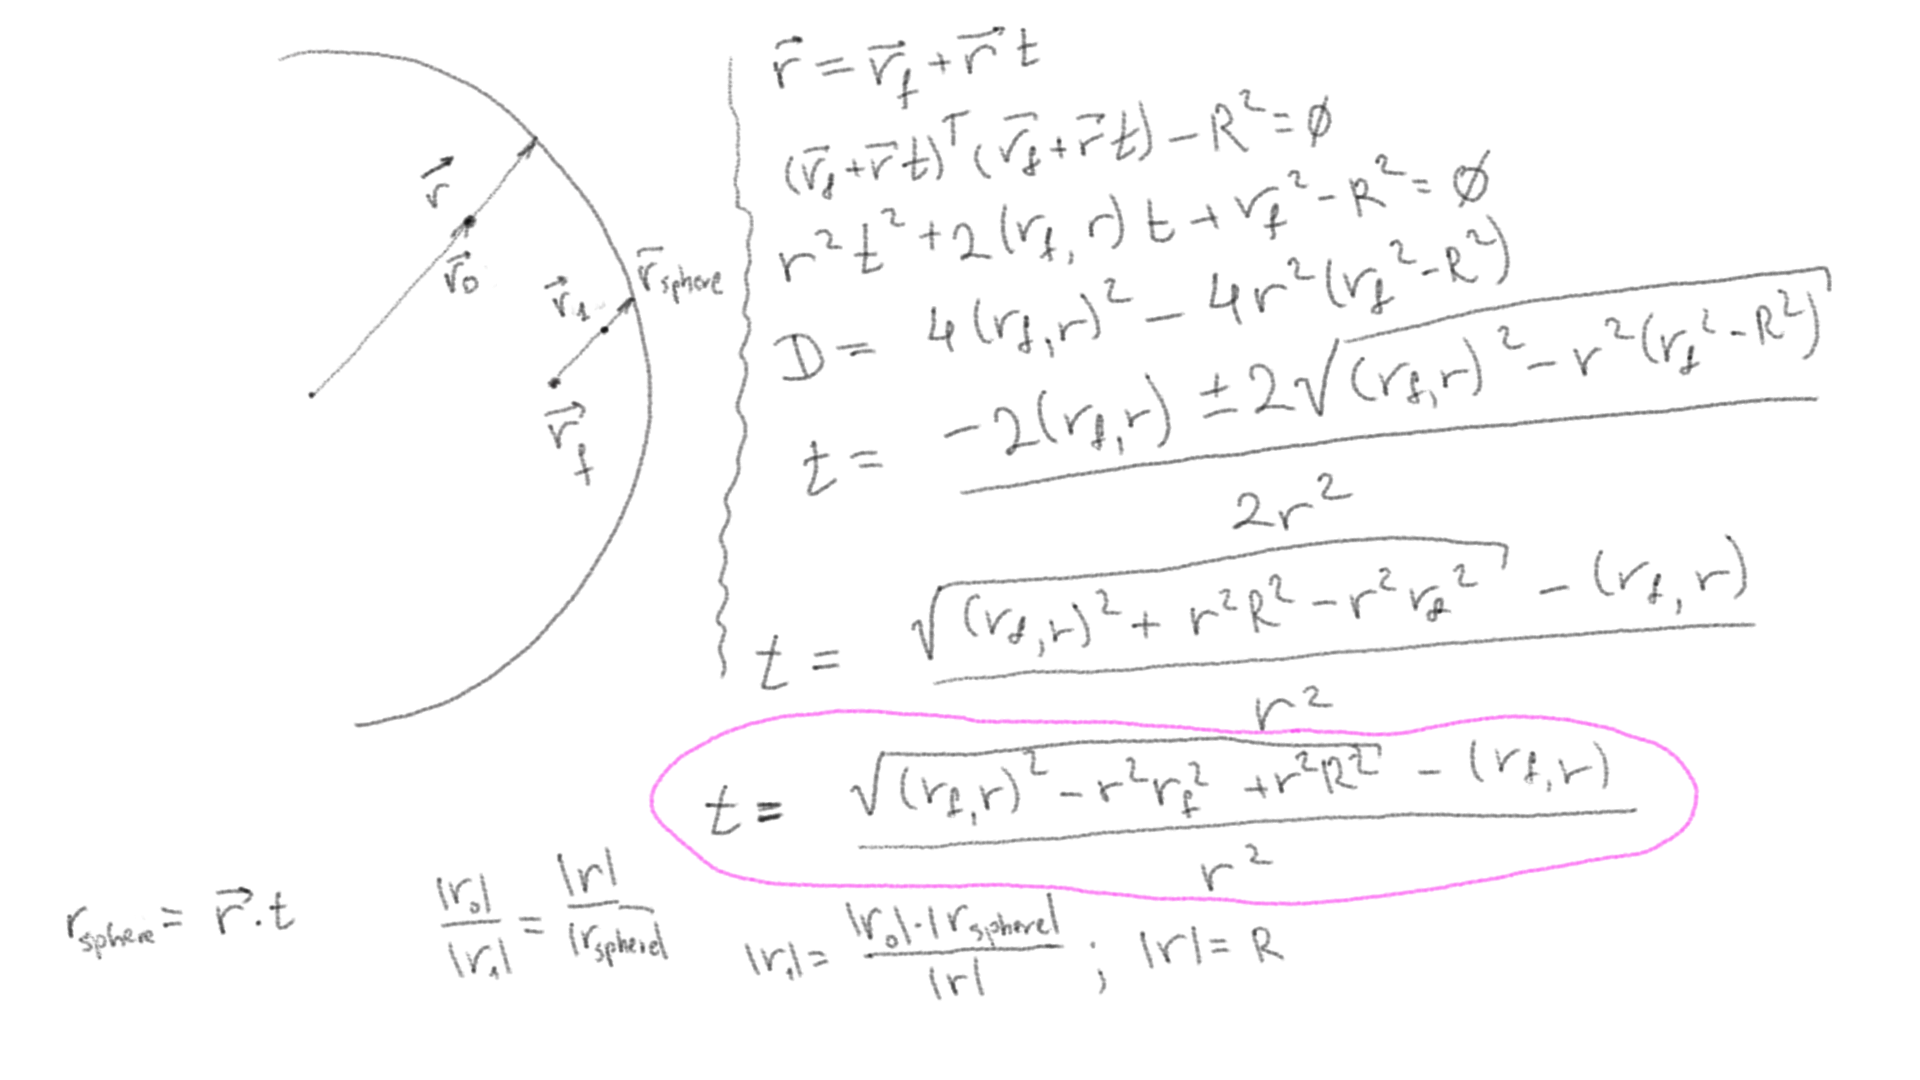 r⃗
r⃗₀
r⃗₁
r⃗sphere
r⃗f
r⃗ = r⃗f + r⃗ t
(r⃗f + r⃗ t)ᵀ (r⃗f + r⃗ t) − R² = ∅
r² t² + 2 (rf, r) t + rf² − R² = ∅
D = 4 (rf, r)² − 4r² (rf² − R²)
t = (−2(rf, r) ± 2√((rf, r)² − r² (rf² − R²))) / 2r²
t = (√((rf, r)² + r²R² − r² rf²) − (rf, r)) / r²
t = (√((rf, r)² − r² rf² + r²R²) − (rf, r)) / r²
rsphere = r⃗ · t |r₀| / |r₁| = |r| / |rsphere| |r₁| = |r₀| · |rsphere| / |r| ; |r| = R